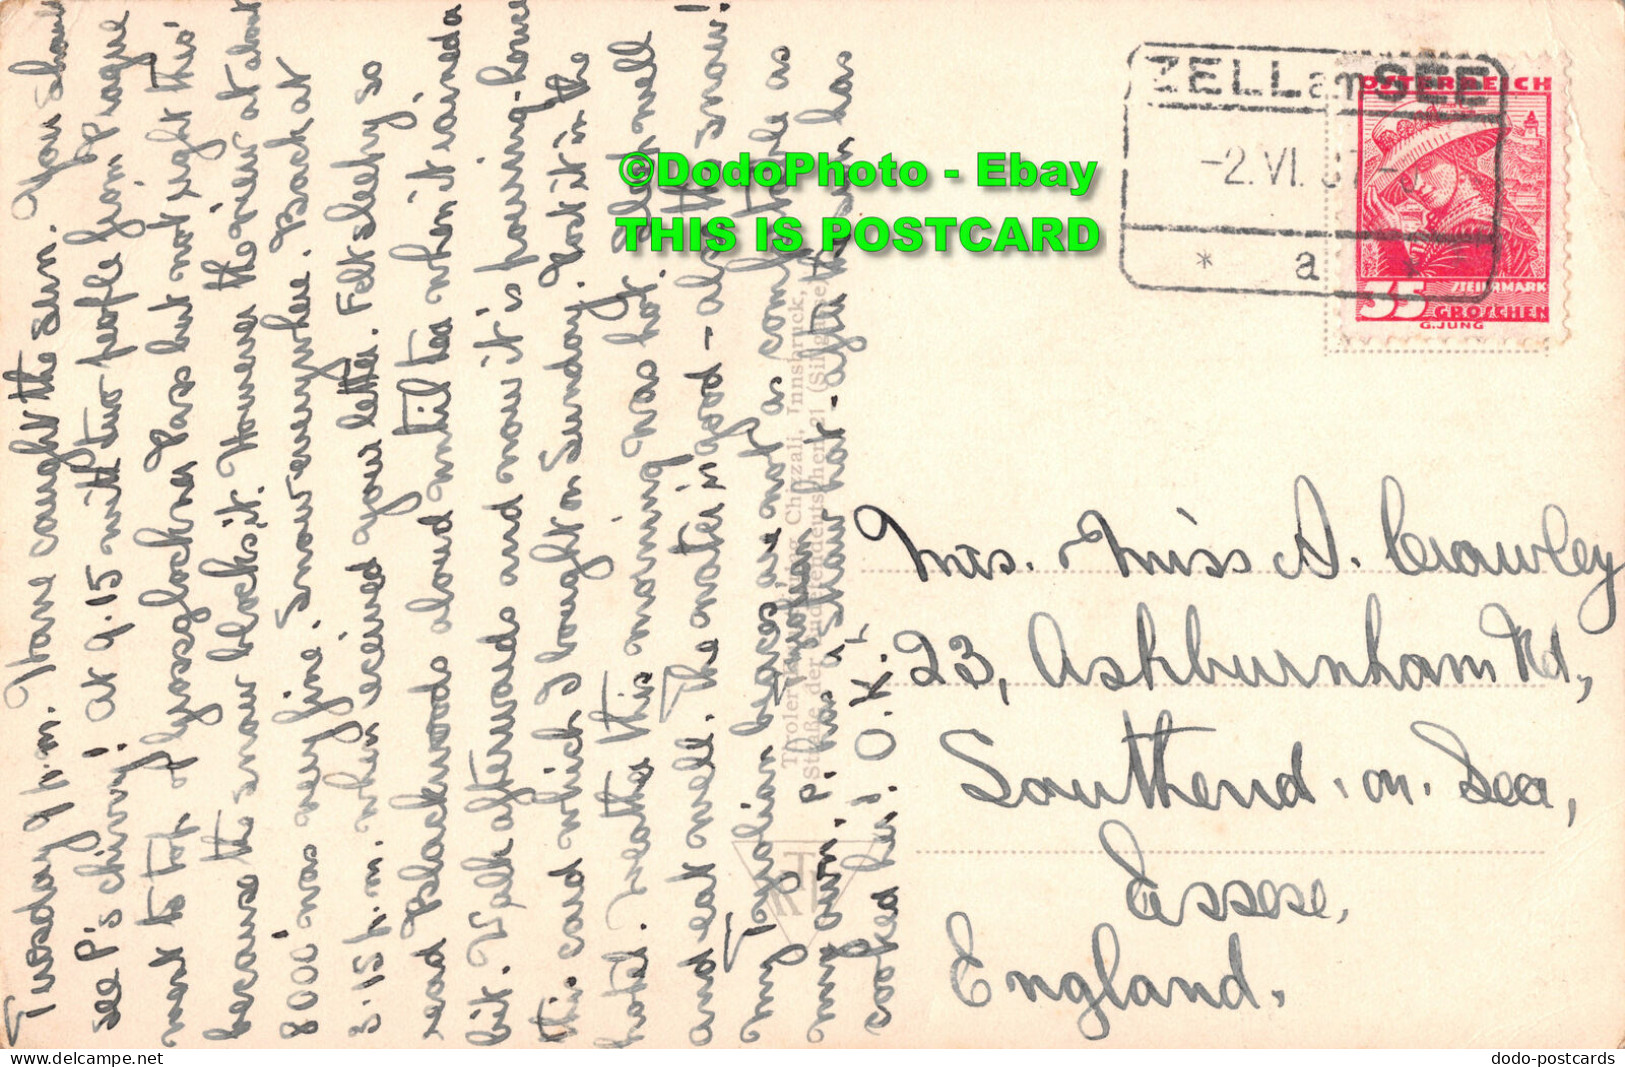 Tuesday 9 p.m. Have caught the sun. You should
see P's chivvy! At 9.15 with two people from Prague
went to top of Glossglockner Pass but not right thro'
because the snow blocks it. However the view at about
8000' was very fine. Snow everywhere. Back at
3.15 p.m. when received your letter. Felt sleepy so
read Blackwoods aloud until tea when it rained a
bit. Walk afterwards and now it is pouring - hence
this card which I bought on Sunday. Post it in the
hotel. Weather this morning was hot. Sleep well
and eat well. The water is good - also the snow!
My Tyrolean braces are not as comfortable as
my own. P. has a straw hat - after the sun has
cooked her! O.K.
Mrs. & Miss A. Crawley
23, Ashburnham Rd,
Southend. on. Sea,
Essex,
England.
ZELL am SEE
-2.VI.
* a *
ÖSTERREICH
STEIERMARK
35 GROSCHEN
G.JUNG
Tiroler Chizzali, Innsbruck,
Straße der Sudetendeutschen 21
©DodoPhoto - Ebay
THIS IS POSTCARD
dodo-postcards
delcampe.net